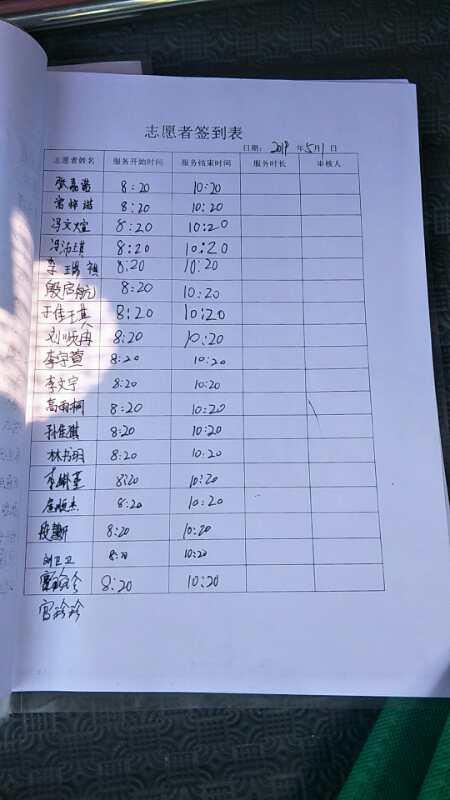 志愿者签到表
日期： 2019 年5月1日
志愿者姓名 服务开始时间 服务结束时间 服务时长 审核人
张嘉 8:20 10:20
8:20 10:20
冯文煊 8:20 10:20
冯沛琪 8:20 10:20
李 8:20 10:20
殷启航 8:20 10:20
于佳琪 8:20 10:20
刘晓冉 8:20 10:20
李宇萱 8:20 10:20
李文宁 8:20 10:20
高雨桐 8:20 10:20
孙佳琪 8:20 10:20
林书羽 8:20 10:20
8:20 10:20
8:20 10:20
段慧 8:20 10:20
刘卫卫 8:20 10:20
8:20 10:20
宫玲玲